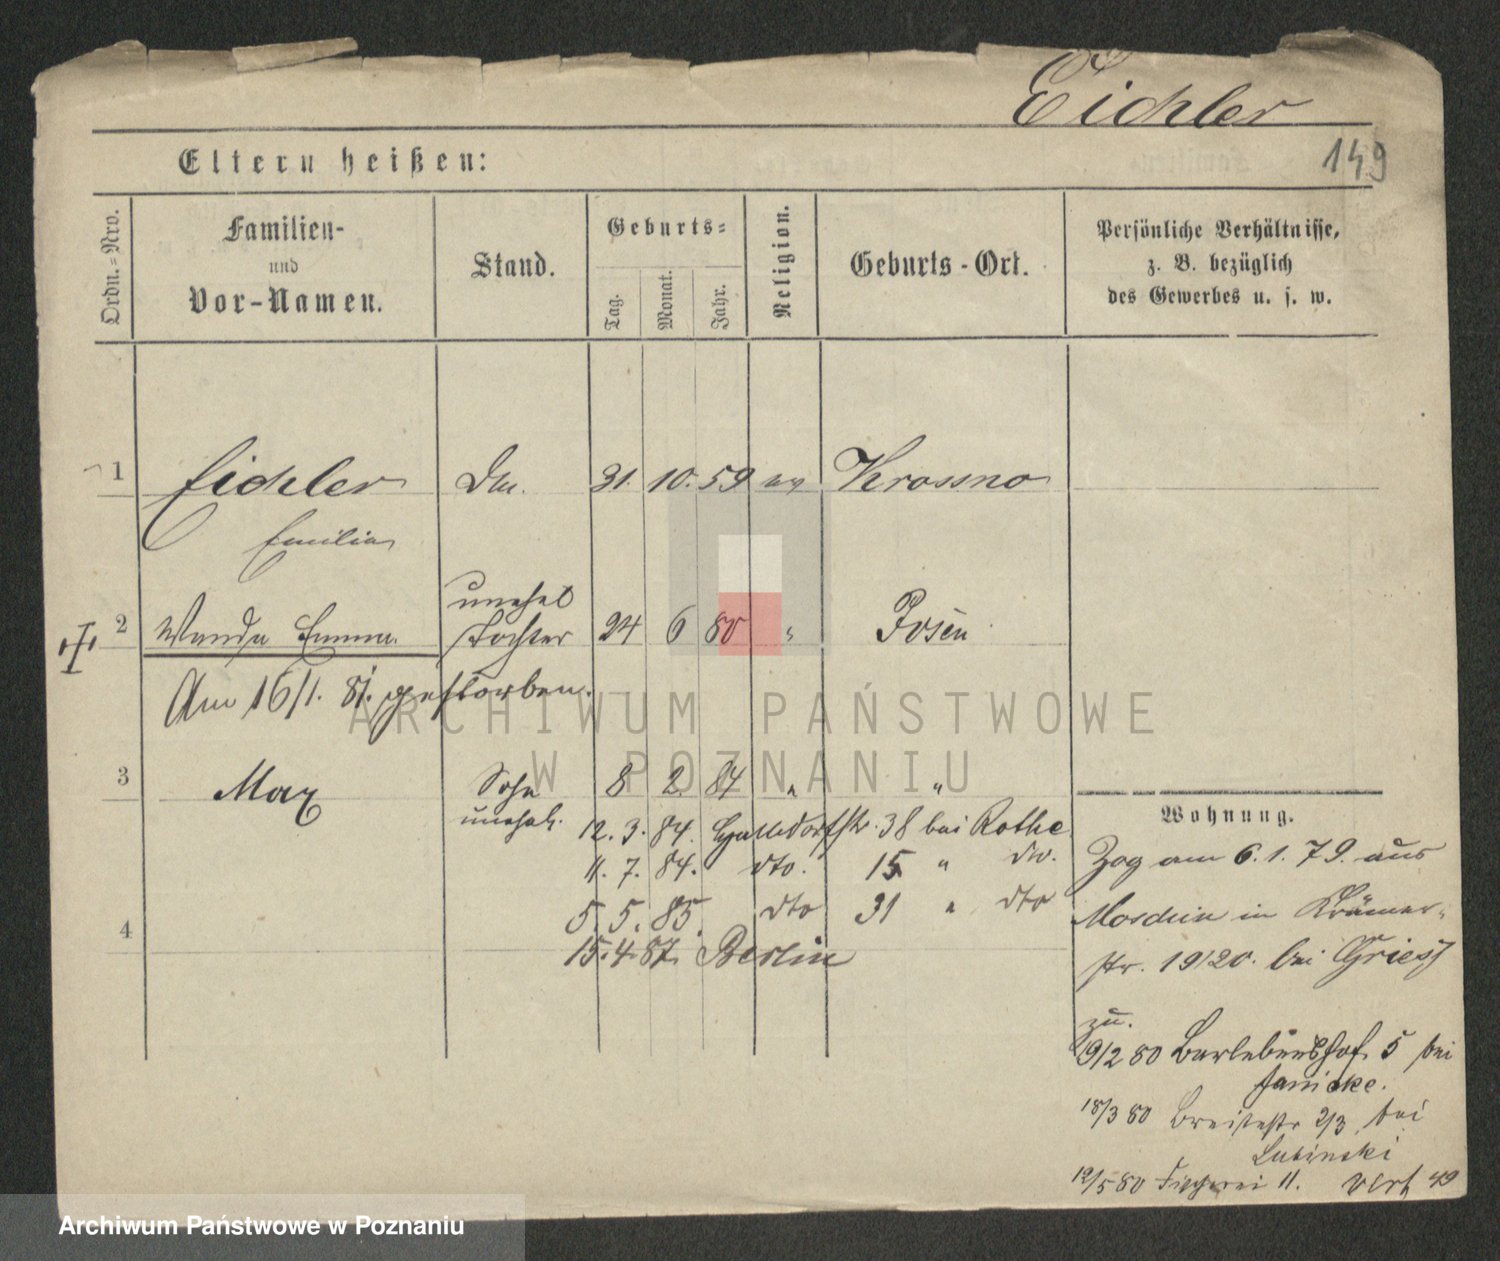 Eichler
149
Eltern heißen:
Ordn.=Nro.
Familien-
und
Vor-Namen.
Stand.
Geburts=
Tag.
Monat.
Jahr.
Religion.
Geburts-Ort.
Persönliche Verhältnisse,
z. B. bezüglich
des Gewerbes u. s. w.
1 Eichler 31. 10. 59 Krossno
Emilia
unehel
2 Wanda Emma. Tochter 24 6 80 " Posen
Am 16/1. 81. gestorben.
3 Max Sohn 8 2 84 " "
unehel.
12. 3. 84. 38 bei Rothe
11. 7. 84. dto. 15 "
5. 5. 85. dto 31 " dto
4
15. 4. 87. Berlin
Wohnung.
Zog am 6. 1. 79. aus
Moschin in Krämer-
str. 19/20. bei Griess
zu.
9/2 80 Barlebenshof 5 bei
Janicke.
18/3 80 Breitestr 2/3 bei
Lubinski
12/5 80 Fischerei 11. vert 49
ARCHIWUM PAŃSTWOWE
W POZNANIU
Archiwum Państwowe w Poznaniu